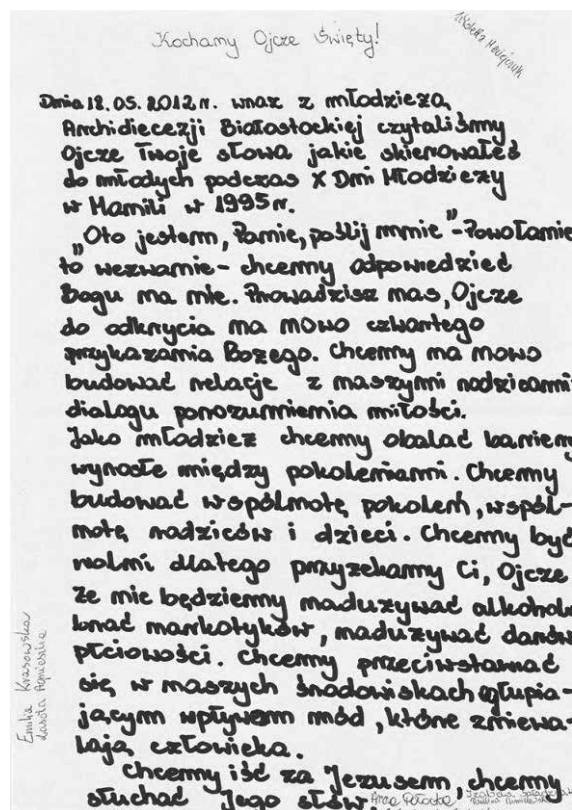 Kochamy Ojcze Święty!
Dnia 18.05.2012 r. wraz z młodzieżą
Archidiecezji Białostockiej czytaliśmy
Ojcze Twoje słowa jakie skierowałeś
do młodych podczas X Dni Młodzieży
w Manili w 1995r.
„Oto jestem, Panie, poślij mnie" - Powołanie
to wezwanie - chcemy odpowiedzieć
Bogu na nie. Prowadzisz nas, Ojcze
do odkrycia na nowo czwartego
przykazania Bożego. Chcemy na nowo
budować relacje z naszymi rodzicami:
dialogu porozumienia miłości.
Jako młodzież chcemy obalać bariery
wyrosłe między pokoleniami. Chcemy
budować wspólnotę pokoleń, wspól-
notę rodziców i dzieci. Chcemy być
wolni dlatego przyrzekamy Ci, Ojcze
że nie będziemy nadużywać alkoholu
brać narkotyków, nadużywać darów
płciowości. Chcemy przeciwstawiać
się w naszych środowiskach ogłupia-
jącym wpływom mód, które zniewa-
lają człowieka.
Chcemy iść za Jezusem, chcemy
słuchać Jego słów
Anna Płocka
Emilia Krasowska
Lasota Agnieszka